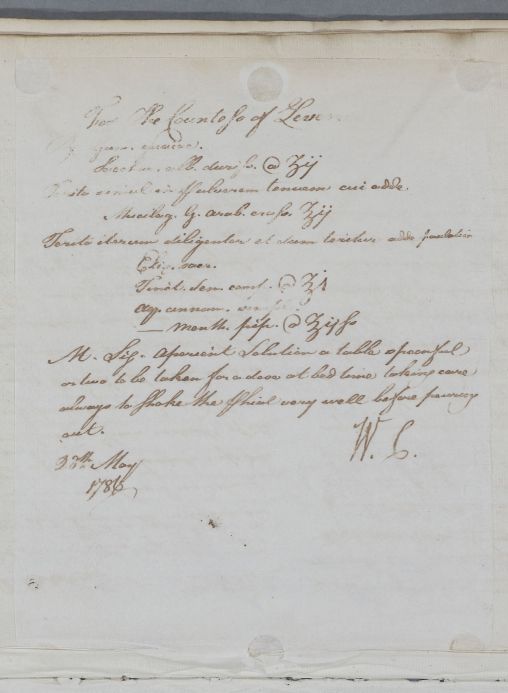 For The Countess of
gum. guaiac.
Sacchar. alb. duriss. @ ʒij
simul in Pulverem tenuem cui adde.
Mucilag. G. arab. crass. ʒij
Terito iterum diligenter et dum teritur adde paulatim
Elix. sacr.
Tinct. Sen. comp. @ ʒj
aq. cinnam.
— menth. pip. @ ʒijss
M. Sig. Aperient Solution a table spoonful
or two to be taken for a dose at bed time taking care
always to shake the Phial very well before pouring
out.
W. C.
May
1786